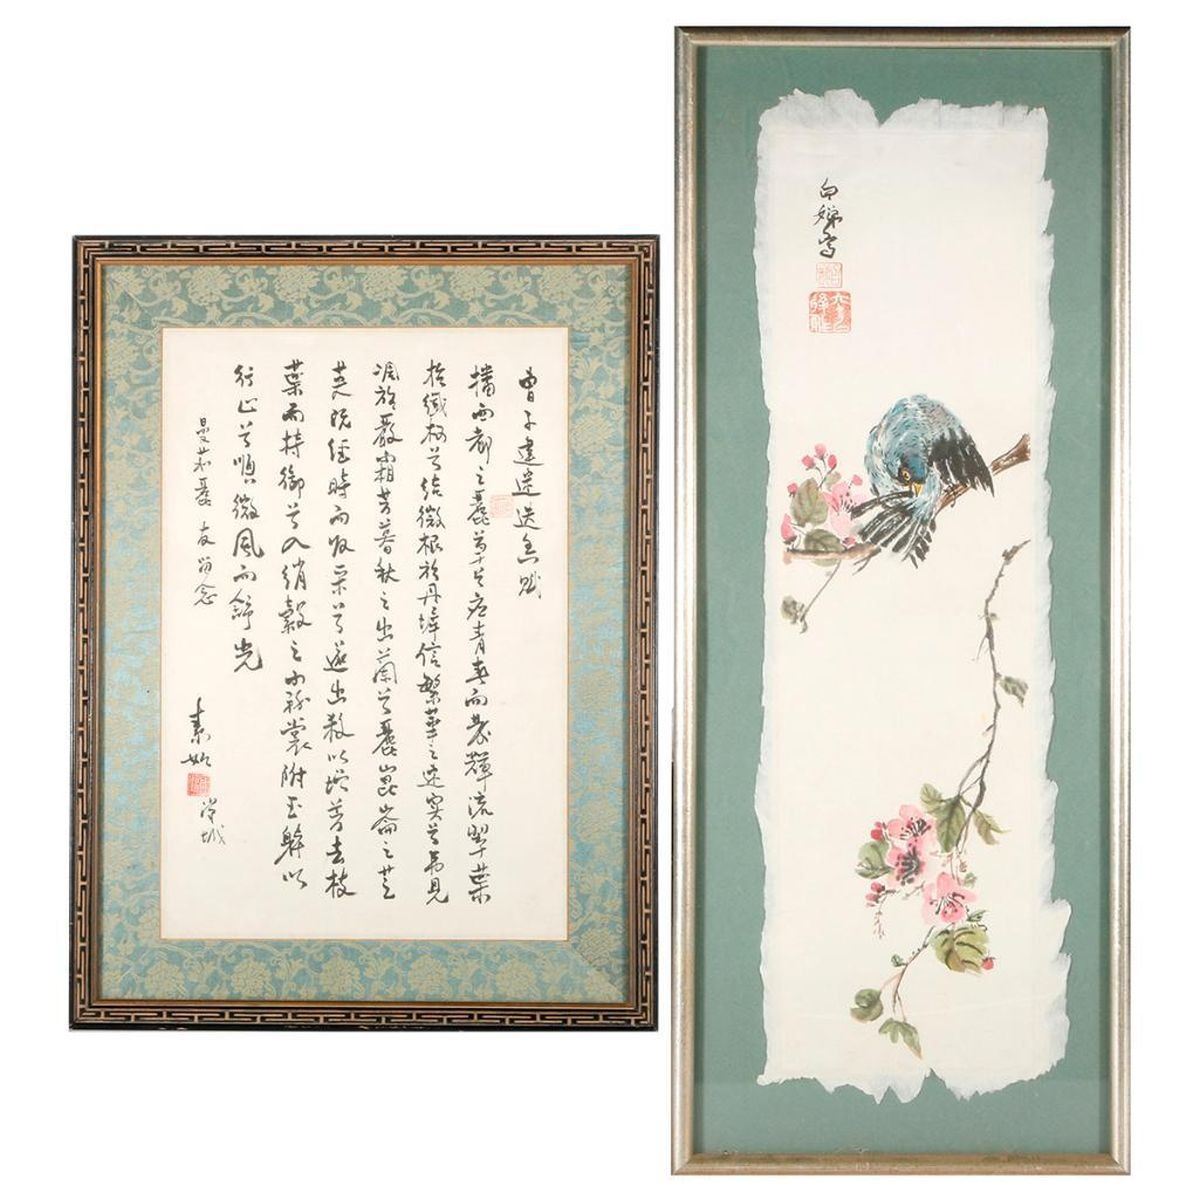 曹子建迷迭香賦
播西都之麗草兮应青春而發輝流翠葉
於纖柯兮結微根於丹墀信繁華之速实兮弗見
凋於嚴霜芳暮秋之幽蘭兮麗崑崙之芝
英既經時而收采兮遂幽殺以增芳去枝
葉而持御兮入綃縠之霧裳附玉躰以
行止兮順微風而舒光
友留念
素如
白娣寫